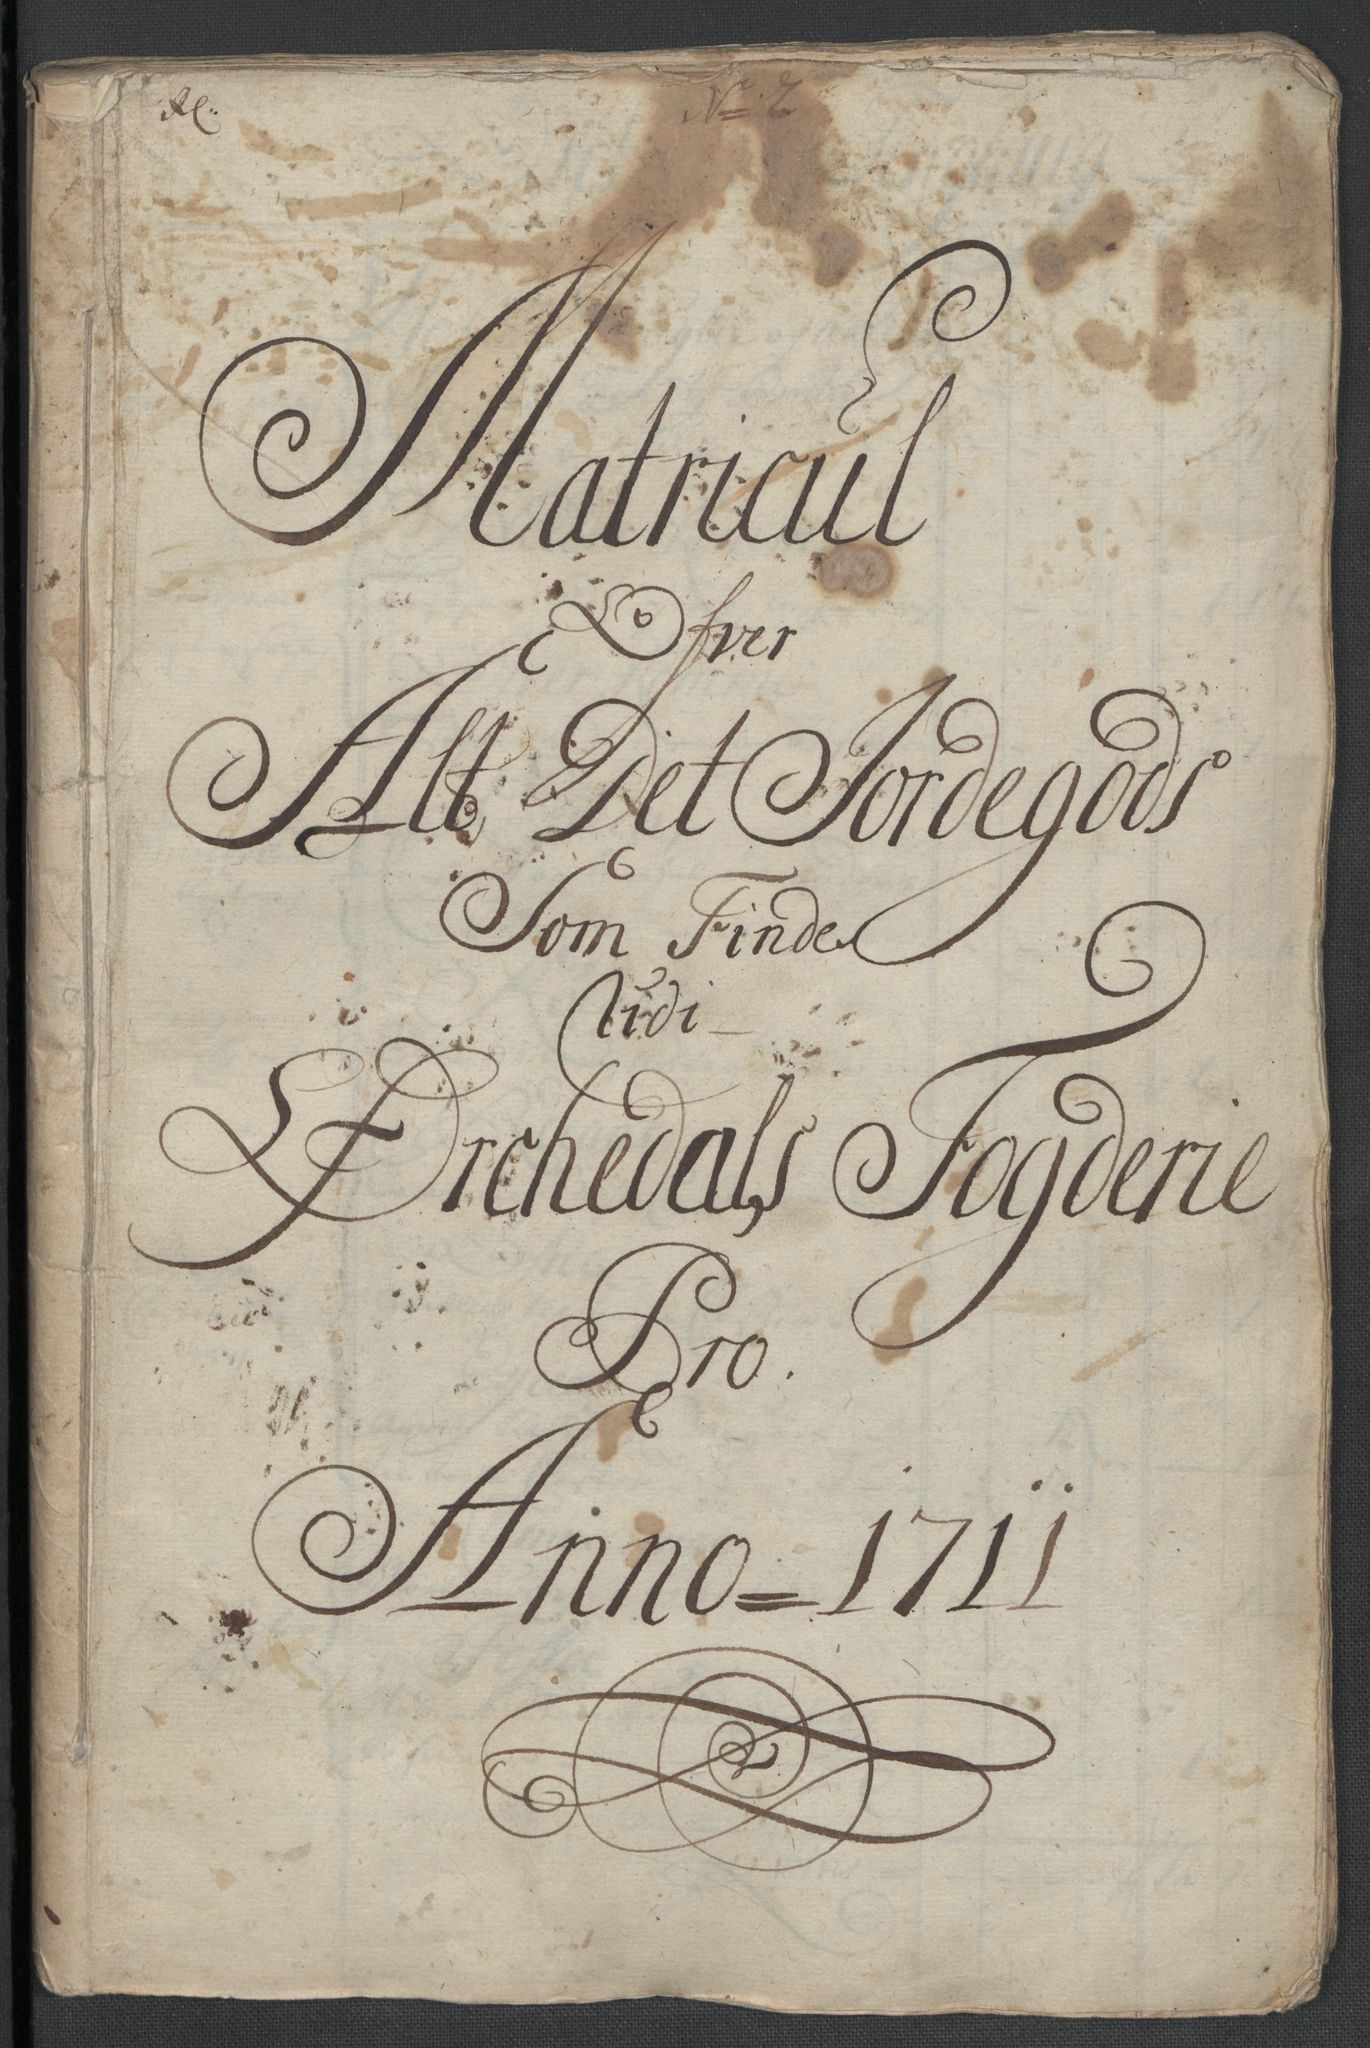 No. 2
Matricul
Ofver
Alt Det Jordegods
Som Findes
Udi
Orchedals Fogderie
Pro.
Anno = 1711